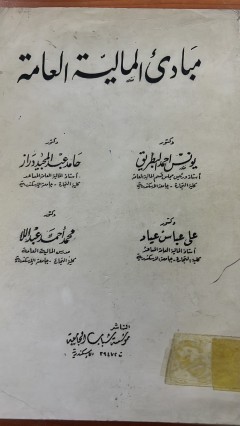 مبادئ المالية العامة
دكتور
يونس أحمد البطريق
أستاذ ورئيس مجلس قسم المالية العامة
كلية التجارة - جامعة الإسكندرية
دكتور
حامد عبد المجيد دراز
أستاذ المالية العامة المساعد
كلية التجارة - جامعة الإسكندرية
دكتور
على عباس عياد
أستاذ المالية العامة المساعد
كلية التجارة - جامعة الإسكندرية
دكتور
محمد أحمد عبد اللا
مدرس المالية العامة
كلية التجارة - جامعة الإسكندرية
الناشر
مؤسسة شباب الجامعة
ت ٣٩٤٧٢ إسكندرية